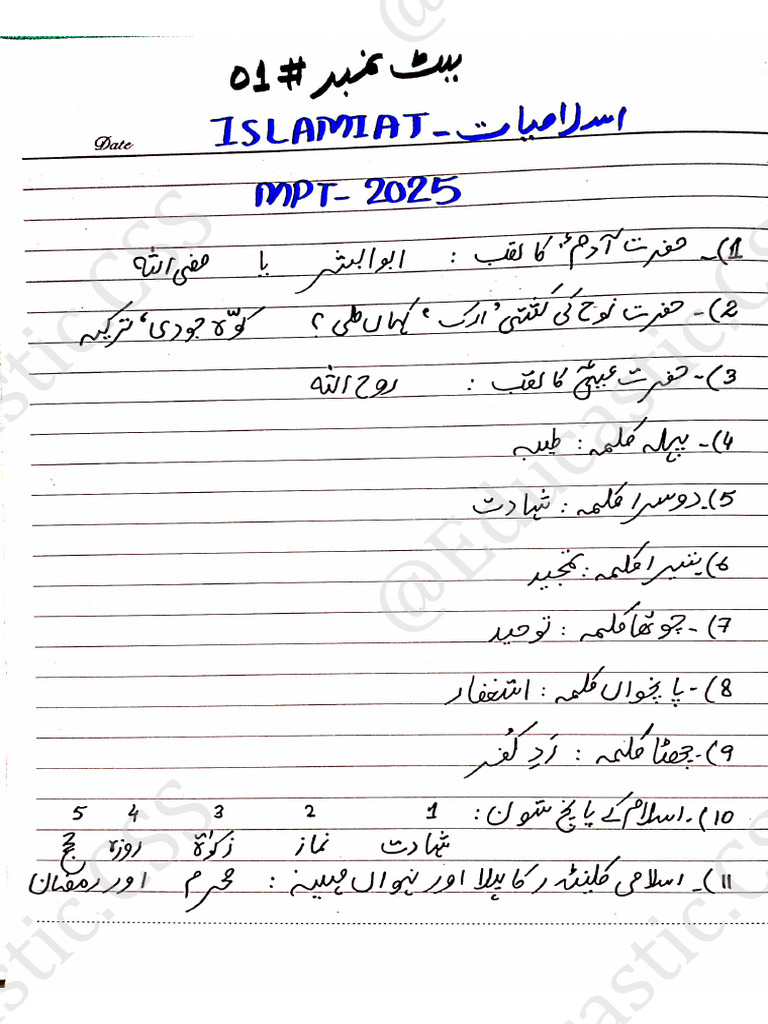 بیٹ نمبر #01
ISLAMIAT - اسلامیات
Date
MPT - 2025
1)۔ حضرت آدمؑ کا لقب : ابوالبشر یا صفی اللہ
2)۔ حضرت نوح کی کشتی 'ارک' کہاں ملی؟ کوہ جودی، ترکیہ
3)۔ حضرت عیسیٰؑ کا لقب : روح اللہ
4)۔ پہلہ کلمہ : طیبہ
5)۔ دوسرا کلمہ : شہادت
6) تیسرا کلمہ : تمجید
7)۔ چوتھا کلمہ : توحید
8)۔ پانچواں کلمہ : استغفار
9)۔ چھٹا کلمہ : رَدِ کُفر
10)۔ اسلام کے پانچ ستون : 1 2 3 4 5
شہادت نماز زکوٰۃ روزہ حج
11)۔ اسلامی کلینڈر کا پہلا اور نہواں مہینہ : محرم اور رمضان
@Educastic.CSS